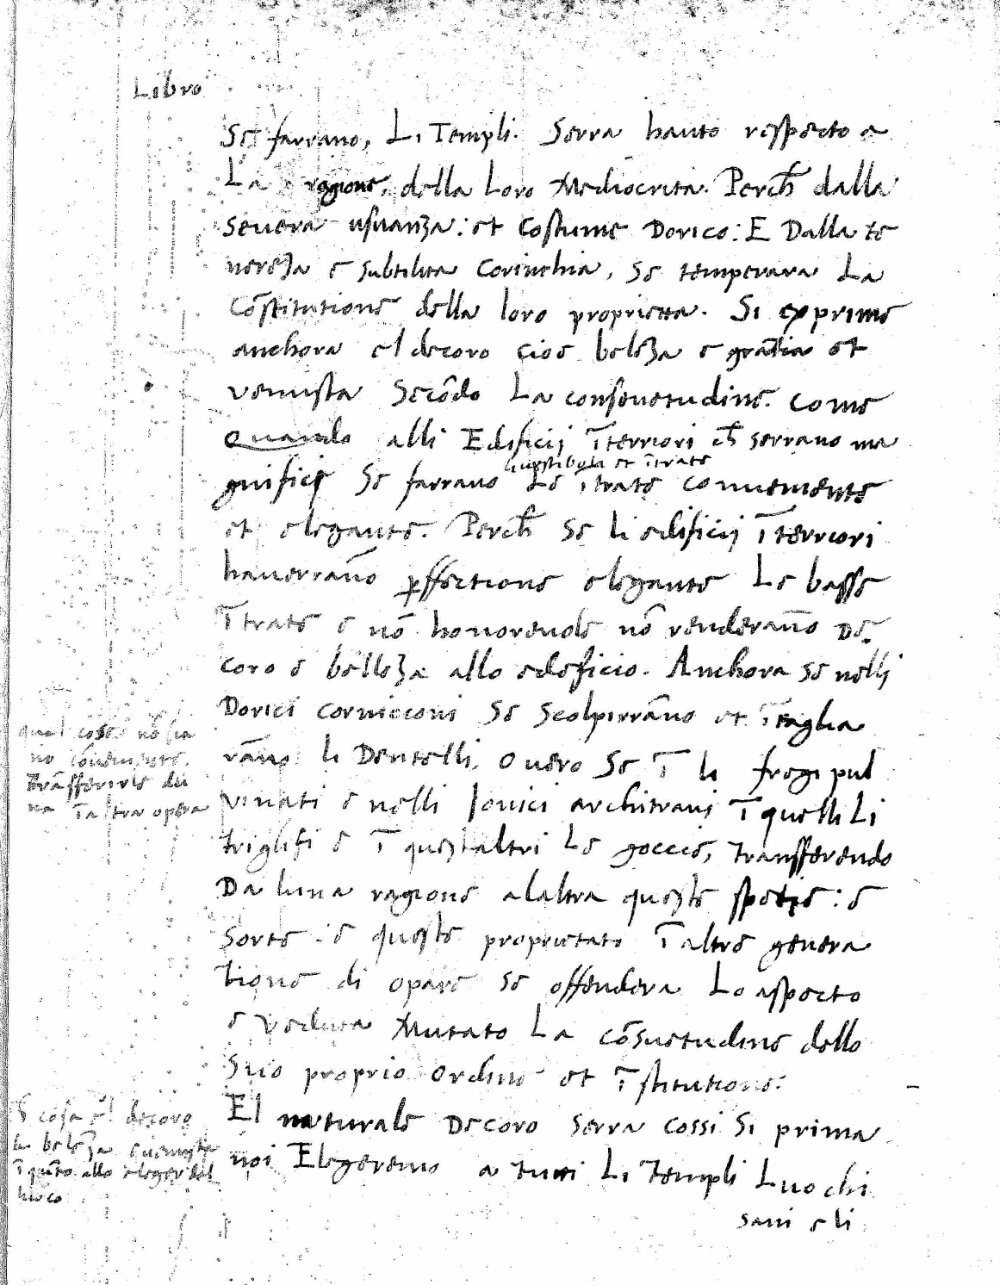 Libro
Se farrano, Li Templi. Serra hauto respecto a
La ragione, della Loro Mediocrita. Perch̄ dalla
severa usuanza: et Costume Dorico: E Dalla te
nereza e subtilita Corinthia, se temperara La
Cōstitutione della loro proprietta. Si exprime
anchora el decoro cioe beleza e gratia et
venusta Secōdo La consuetudine. Come
Quando alli Edificij īterriori ch̄ serrano ma
li vestibula et ītrate
gnifici Se farrano Le ītrate conveniente
et elegante. Perch̄ se li edificij īterriori
haverrāno ꝑffectione elegante Le basse
ītrate e nō honorevole nō renderāno De
coro e belleza allo edeficio. Anchora se nelli
Dorici corniccioni Se Scolpirrāno et ītaglia
rāno li Dentelli. Overo Se ī li fregi pul
vinati e nelli Ionici architravi ī quelli Li
triglifi e ī quest altri Le goccie, transfferendo
Da luna ragione alaltra queste spetie: e
Sorte: e queste proprietate ī altre genera
tione di opare se offendera Lo aspecto
e veduta Mutato La cōsuetudine dello
Suo proprio ordine et īstitutione:
El naturale Decoro serra cossi Si prima
noi Elegeremo a tutti Li Templi Luochi
sani e li
qual cose nō sia
no cōveniente
Trāsferirle du
na ī altra opera
ch̄ cosa e il decoro
la beleza e venusta
ī quāto allo eleger del
luoco